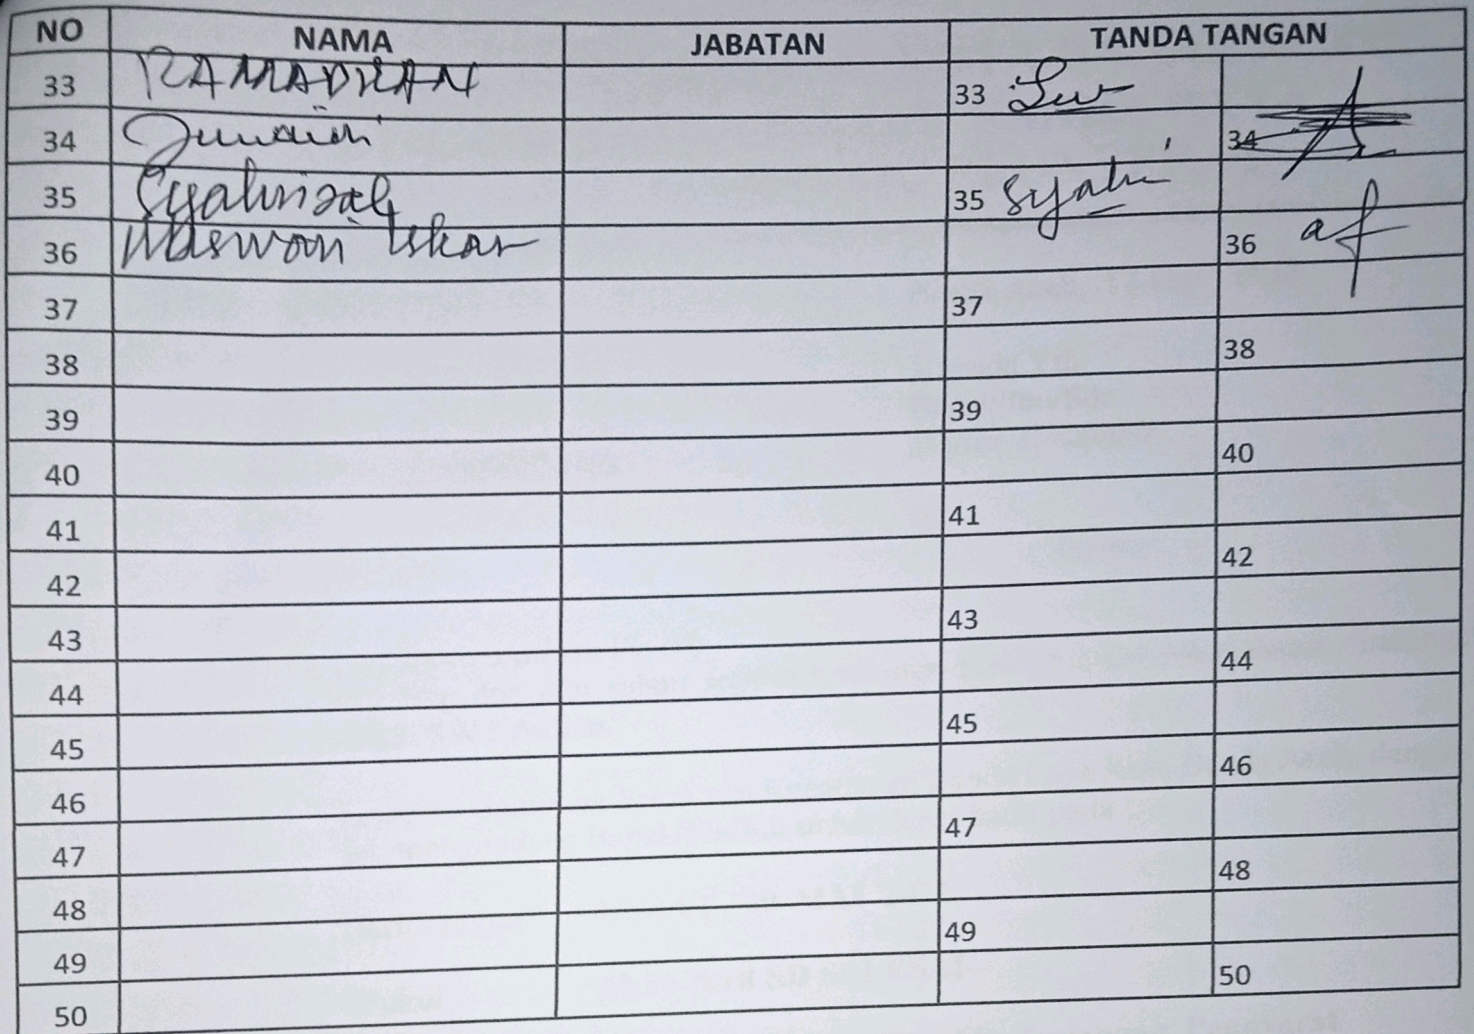 NO NAMA JABATAN TANDA TANGAN
33 RAMADHAN 33
34 Junaidi 34
35 Syahrizal 35 Syahri
36 Maswan Iskar 36
37 37
38 38
39 39
40 40
41 41
42 42
43 43
44 44
45 45
46 46
47 47
48 48
49 49
50 50